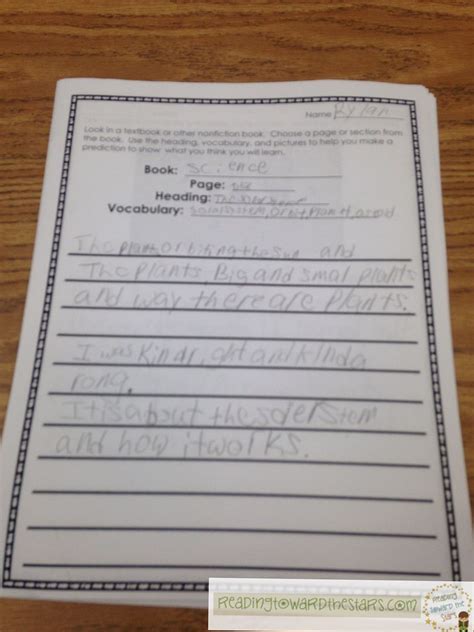 Name Rylan
Look in a textbook or other nonfiction book. Choose a page or section from
the book. Use the heading, vocabulary, and pictures to help you make a
prediction to show what you think you will learn.
Book: science
Page:
Heading: The
Vocabulary: Solar System, Orbit, Planet,
The plants orbiting the sun and
The plants, Big and small plants
and way there are plants.
I was kind right and kinda
rong.
It is about the soler stem
and how it works.
readingtowardthestars.com
Reading
Toward the
Stars